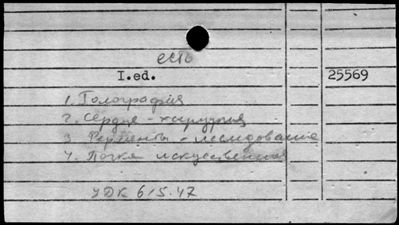 есть
I.ed. 25569
1. Голография
2. Сердце - хирургия
3. Ферменты - исследование
4. Почка искусственная
УДК 615.47